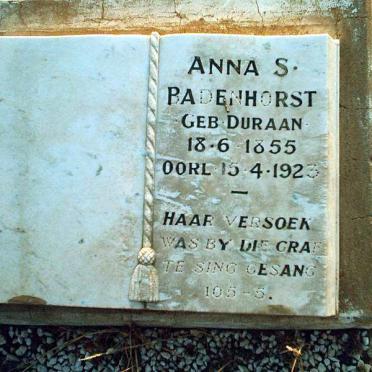 ANNA S.
BADENHORST
GEB DURAAN
18·6 1855
OORL 15·4·1923
HAAR VERSOEK
WAS BY DIE GRAF
TE SING GESANG
105-5.